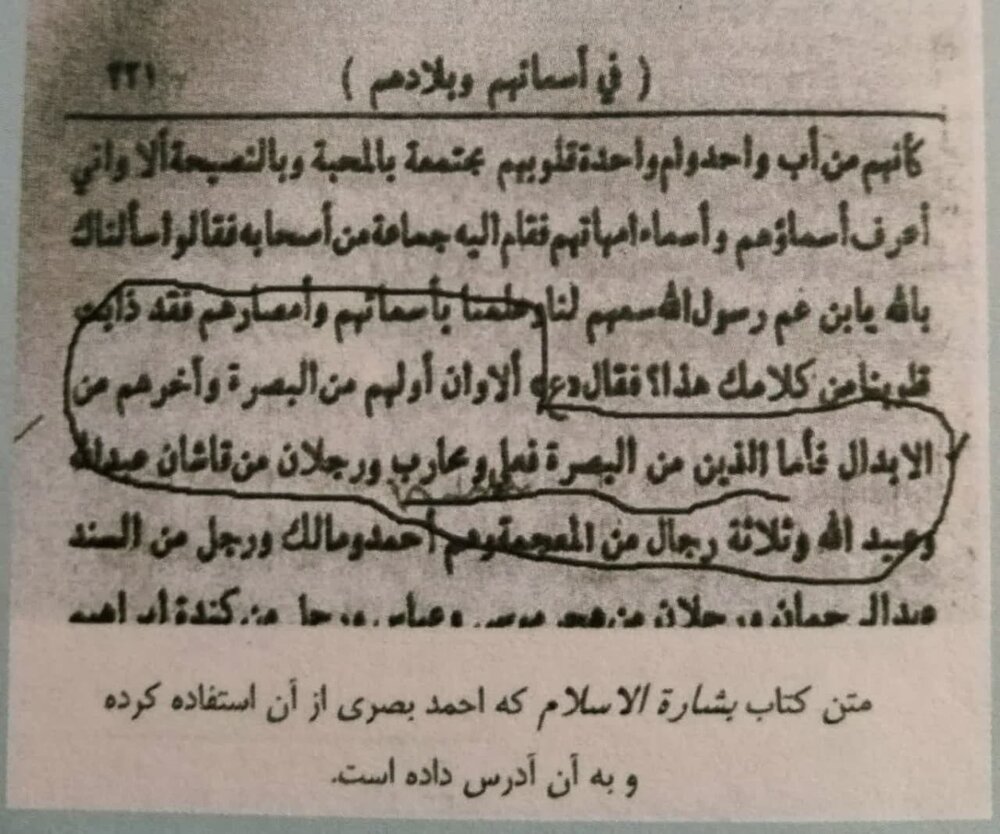 ( في أسمائهم وبلادهم ) ٢٢١
كأنهم من أب واحد وام واحدة قلوبهم مجتمعة بالمحبة وبالنصيحة ألا واني
أعرف أسماؤهم وأسماء امهاتهم فقام اليه جماعة من أصحابه فقالوا سألناك
بالله يابن عم رسول الله سمهم لنا وعلمنا بأسمائهم وأمصارهم فقد ذابت
قلوبنا من كلامك هذا؟ فقال «ع» ألا وان أولهم من البصرة وأخرهم من
الابدال فأما الذين من البصرة فعلي ومحارب ورجلان من قاشان عبدالله
وعبيد الله وثلاثة رجال من المعجمة وهم أحمد ومالك ورجل من السند
عبدالرحمان ورجلان من هجر موسى وعباس ورجل من كندة ابراهيم
متن کتاب بشارة الاسلام که احمد بصری از آن استفاده کرده
و به آن آدرس داده است.